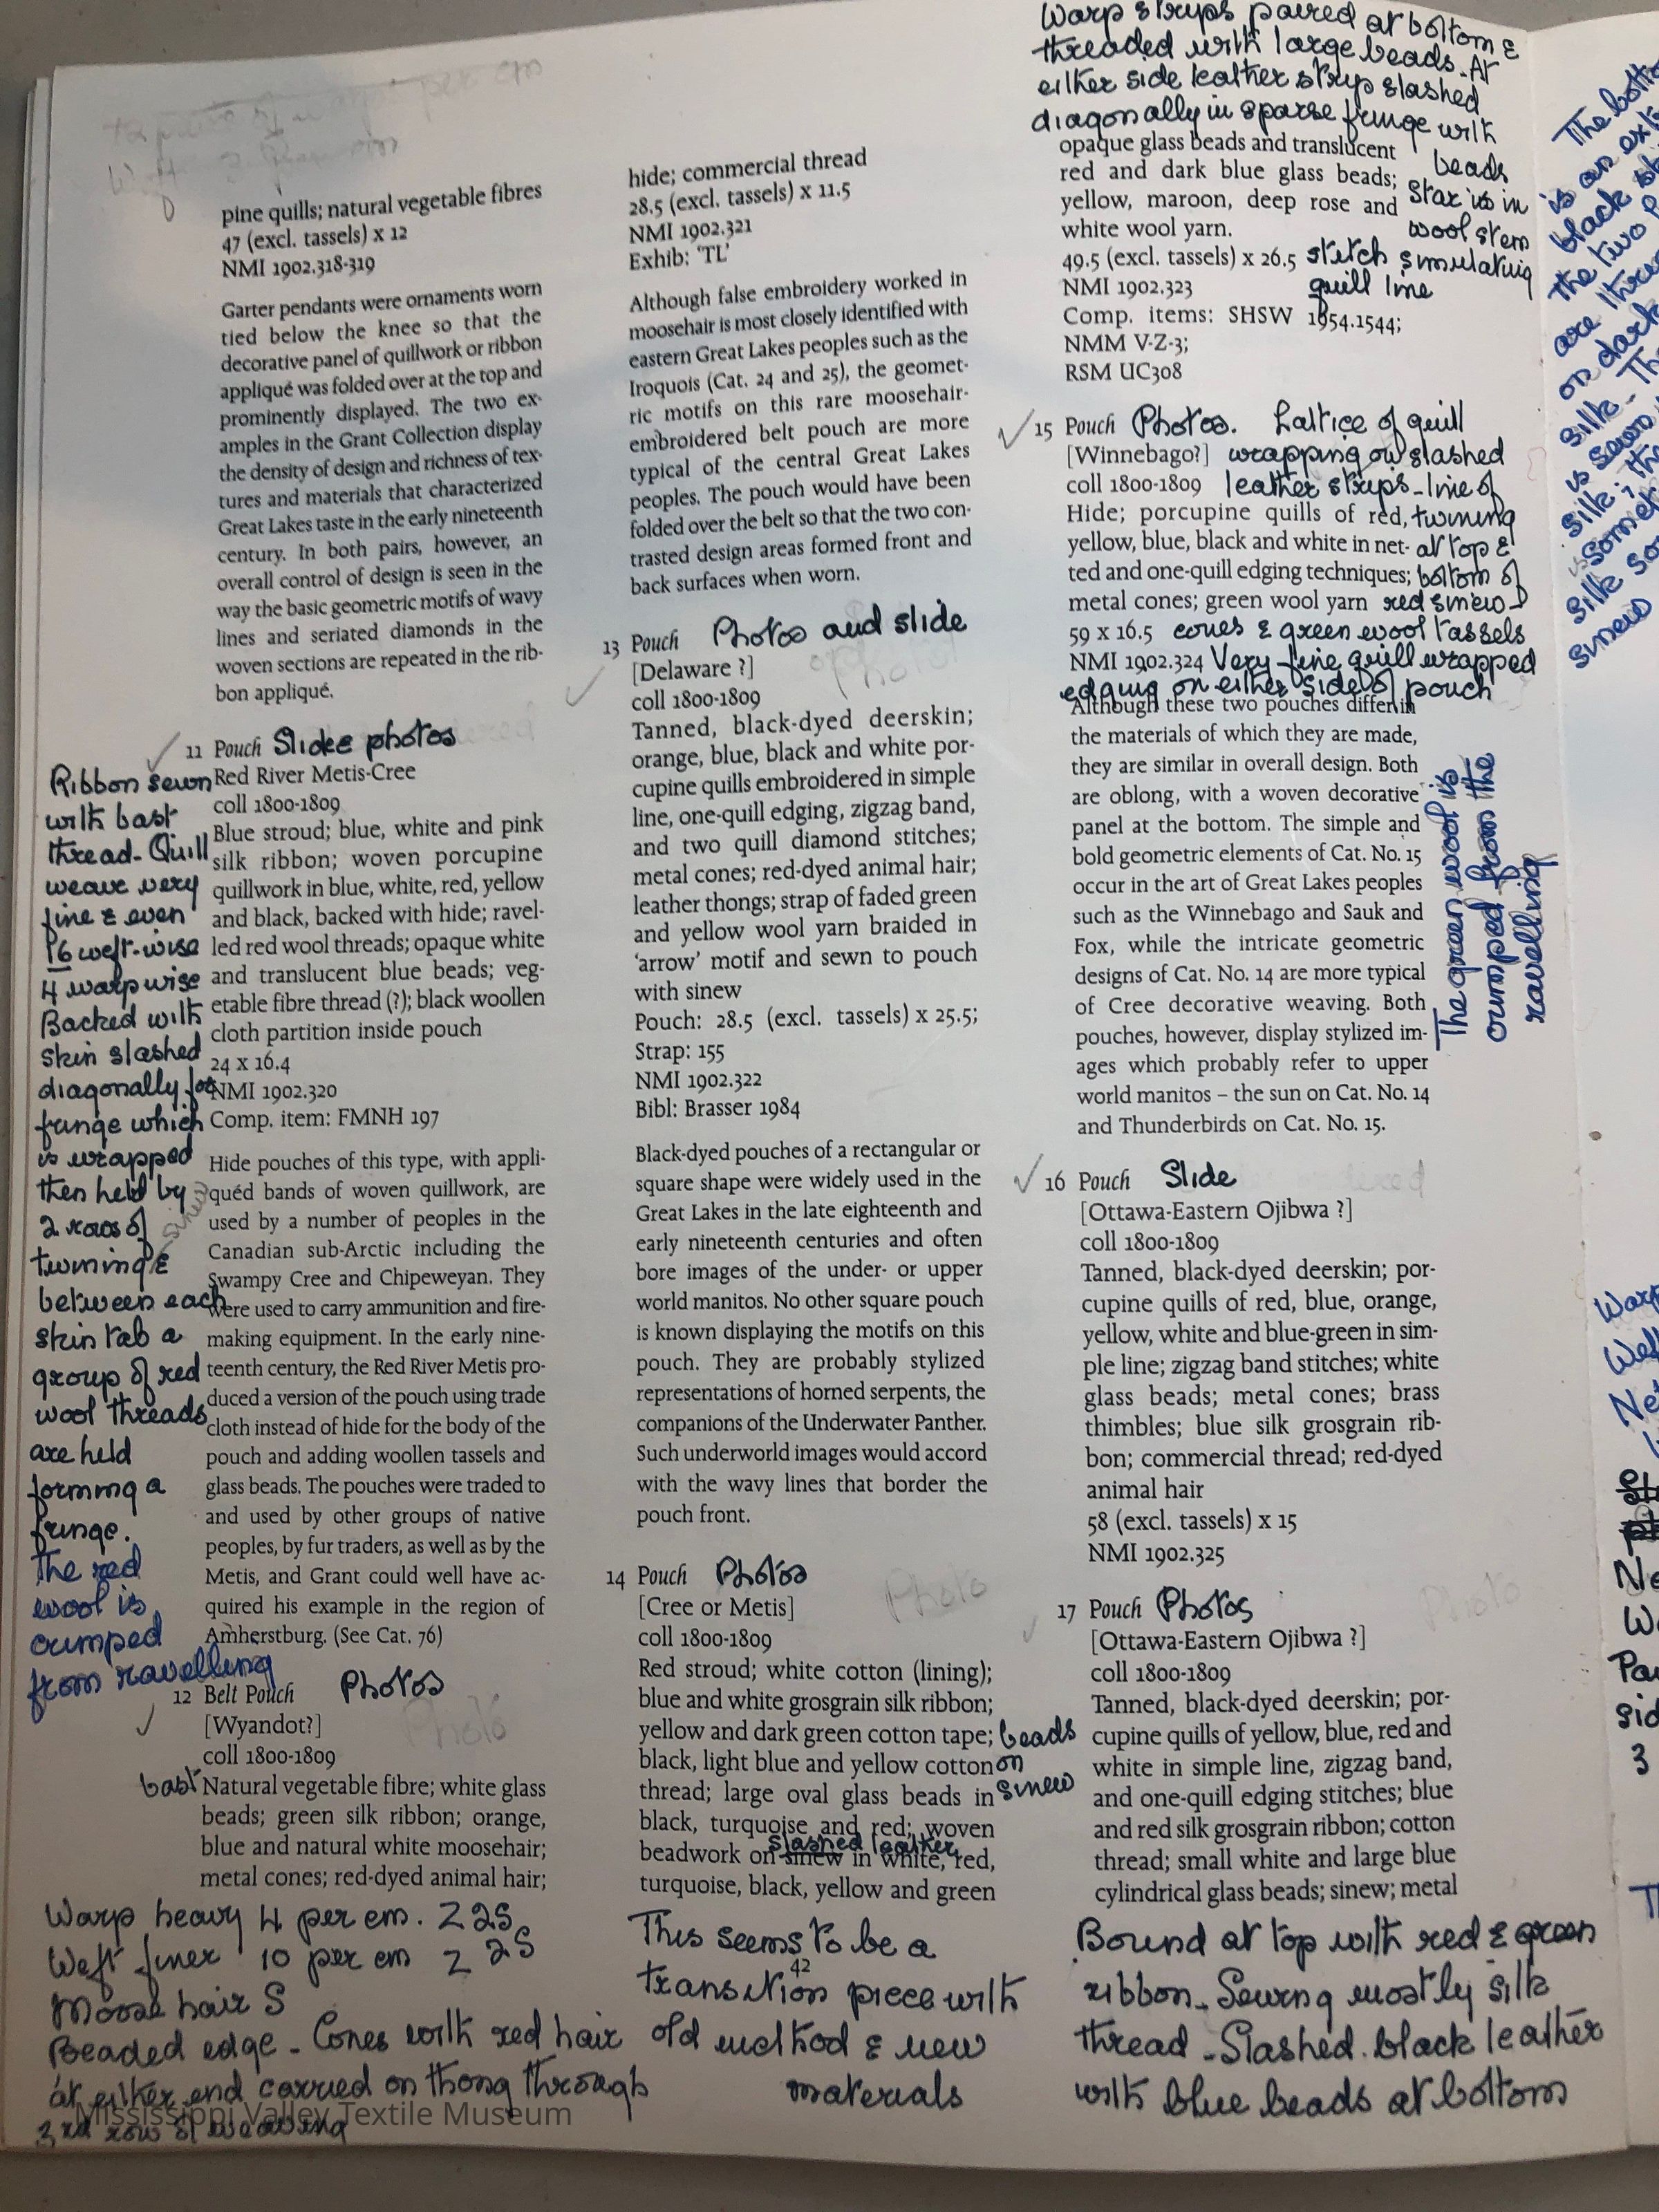 pine quills; natural vegetable fibres
47 (excl. tassels) x 12
NMI 1902.318-319
Garter pendants were ornaments worn
tied below the knee so that the
decorative panel of quillwork or ribbon
appliqué was folded over at the top and
prominently displayed. The two ex-
amples in the Grant Collection display
the density of design and richness of tex-
tures and materials that characterized
Great Lakes taste in the early nineteenth
century. In both pairs, however, an
overall control of design is seen in the
way the basic geometric motifs of wavy
lines and seriated diamonds in the
woven sections are repeated in the rib-
bon appliqué.
11 Pouch Slide photos
Red River Metis-Cree
coll 1800-1809
Blue stroud; blue, white and pink
silk ribbon; woven porcupine
quillwork in blue, white, red, yellow
and black, backed with hide; ravel-
led red wool threads; opaque white
and translucent blue beads; veg-
etable fibre thread (?); black woollen
cloth partition inside pouch
24 x 16.4
NMI 1902.320
Comp. item: FMNH 197
Hide pouches of this type, with appli-
quéd bands of woven quillwork, are
used by a number of peoples in the
Canadian sub-Arctic including the
Swampy Cree and Chipeweyan. They
were used to carry ammunition and fire-
making equipment. In the early nine-
teenth century, the Red River Metis pro-
duced a version of the pouch using trade
cloth instead of hide for the body of the
pouch and adding woollen tassels and
glass beads. The pouches were traded to
and used by other groups of native
peoples, by fur traders, as well as by the
Metis, and Grant could well have ac-
quired his example in the region of
Amherstburg. (See Cat. 76)
Ribbon sewn
with bast
thread - Quill
weave very
fine & even
16 weft-wise
4 warp wise
Backed with
skin slashed
diagonally for
fringe which
is wrapped
then held by
2 rows of
sinew
twining &
between each
skin tab a
group of red
wool threads
are held
forming a
fringe.
The red
wool is
crimped
from ravelling
12 Belt Pouch Photos
Photo
[Wyandot?]
coll 1800-1809
bast Natural vegetable fibre; white glass
beads; green silk ribbon; orange,
blue and natural white moosehair;
metal cones; red-dyed animal hair;
Warp heavy 4 per cm. Z 2S
Weft finer 10 per cm Z 2S
Moose hair S
Beaded edge - Cones with red hair
at either end carried on thong through
3rd row of weaving
hide; commercial thread
28.5 (excl. tassels) x 11.5
NMI 1902.321
Exhib: ‘TL’
Although false embroidery worked in
moosehair is most closely identified with
eastern Great Lakes peoples such as the
Iroquois (Cat. 24 and 25), the geomet-
ric motifs on this rare moosehair-
embroidered belt pouch are more
typical of the central Great Lakes
peoples. The pouch would have been
folded over the belt so that the two con-
trasted design areas formed front and
back surfaces when worn.
13 Pouch Photos and slide
Photo
[Delaware ?]
coll 1800-1809
Tanned, black-dyed deerskin;
orange, blue, black and white por-
cupine quills embroidered in simple
line, one-quill edging, zigzag band,
and two quill diamond stitches;
metal cones; red-dyed animal hair;
leather thongs; strap of faded green
and yellow wool yarn braided in
‘arrow’ motif and sewn to pouch
with sinew
Pouch: 28.5 (excl. tassels) x 25.5;
Strap: 155
NMI 1902.322
Bibl: Brasser 1984
Black-dyed pouches of a rectangular or
square shape were widely used in the
Great Lakes in the late eighteenth and
early nineteenth centuries and often
bore images of the under- or upper
world manitos. No other square pouch
is known displaying the motifs on this
pouch. They are probably stylized
representations of horned serpents, the
companions of the Underwater Panther.
Such underworld images would accord
with the wavy lines that border the
pouch front.
14 Pouch Photos
Photo
[Cree or Metis]
coll 1800-1809
Red stroud; white cotton (lining);
blue and white grosgrain silk ribbon;
yellow and dark green cotton tape; beads
black, light blue and yellow cotton on
thread; large oval glass beads in sinew
black, turquoise and red; woven
slashed leather
beadwork on sinew in white, red,
turquoise, black, yellow and green
This seems to be a
42
transition piece with
old method & new
materials
Warp strips paired at bottom &
threaded with large beads. At
either side leather strip slashed
diagonally in sparse fringe with
beads
opaque glass beads and translucent
red and dark blue glass beads;
yellow, maroon, deep rose and
white wool yarn.
Star is in
wool stem
stitch simulating
quill line
49.5 (excl. tassels) x 26.5
NMI 1902.323
Comp. items: SHSW 1954.1544;
NMM V-Z-3;
RSM UC308
15 Pouch Photos. Lattice of quill
[Winnebago?] wrapping on slashed
coll 1800-1809 leather strips - line of
Hide; porcupine quills of red, twining
yellow, blue, black and white in net- at top &
ted and one-quill edging techniques; bottom of
metal cones; green wool yarn red sinew
59 x 16.5 cones & green wool tassels
NMI 1902.324 Very fine quill wrapped
edging on either side of pouch
Although these two pouches differ in
the materials of which they are made,
they are similar in overall design. Both
are oblong, with a woven decorative
panel at the bottom. The simple and
bold geometric elements of Cat. No. 15
occur in the art of Great Lakes peoples
such as the Winnebago and Sauk and
Fox, while the intricate geometric
designs of Cat. No. 14 are more typical
of Cree decorative weaving. Both
pouches, however, display stylized im-
ages which probably refer to upper
world manitos – the sun on Cat. No. 14
and Thunderbirds on Cat. No. 15.
The green wool is
crimped from the
ravelling
16 Pouch Slide
[Ottawa-Eastern Ojibwa ?]
coll 1800-1809
Tanned, black-dyed deerskin; por-
cupine quills of red, blue, orange,
yellow, white and blue-green in sim-
ple line; zigzag band stitches; white
glass beads; metal cones; brass
thimbles; blue silk grosgrain rib-
bon; commercial thread; red-dyed
animal hair
58 (excl. tassels) x 15
NMI 1902.325
17 Pouch Photos
Photo
[Ottawa-Eastern Ojibwa ?]
coll 1800-1809
Tanned, black-dyed deerskin; por-
cupine quills of yellow, blue, red and
white in simple line, zigzag band,
and one-quill edging stitches; blue
and red silk grosgrain ribbon; cotton
thread; small white and large blue
cylindrical glass beads; sinew; metal
Bound at top with red & green
ribbon - Sewing mostly silk
thread - Slashed black leather
with blue beads at bottom
is an
black
the two
are
on dark
silk -
is sewn
silk; the
silk
sinew
Mississippi Valley Textile Museum